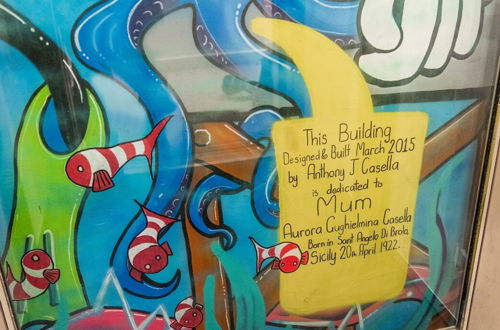 This Building
Designed & Built March 2015
by Anthony J Casella
is dedicated to
Mum
Aurora Gughielmina Casella
Born in Sant Angelo Di Brolo
Sicily 20th April 1922.